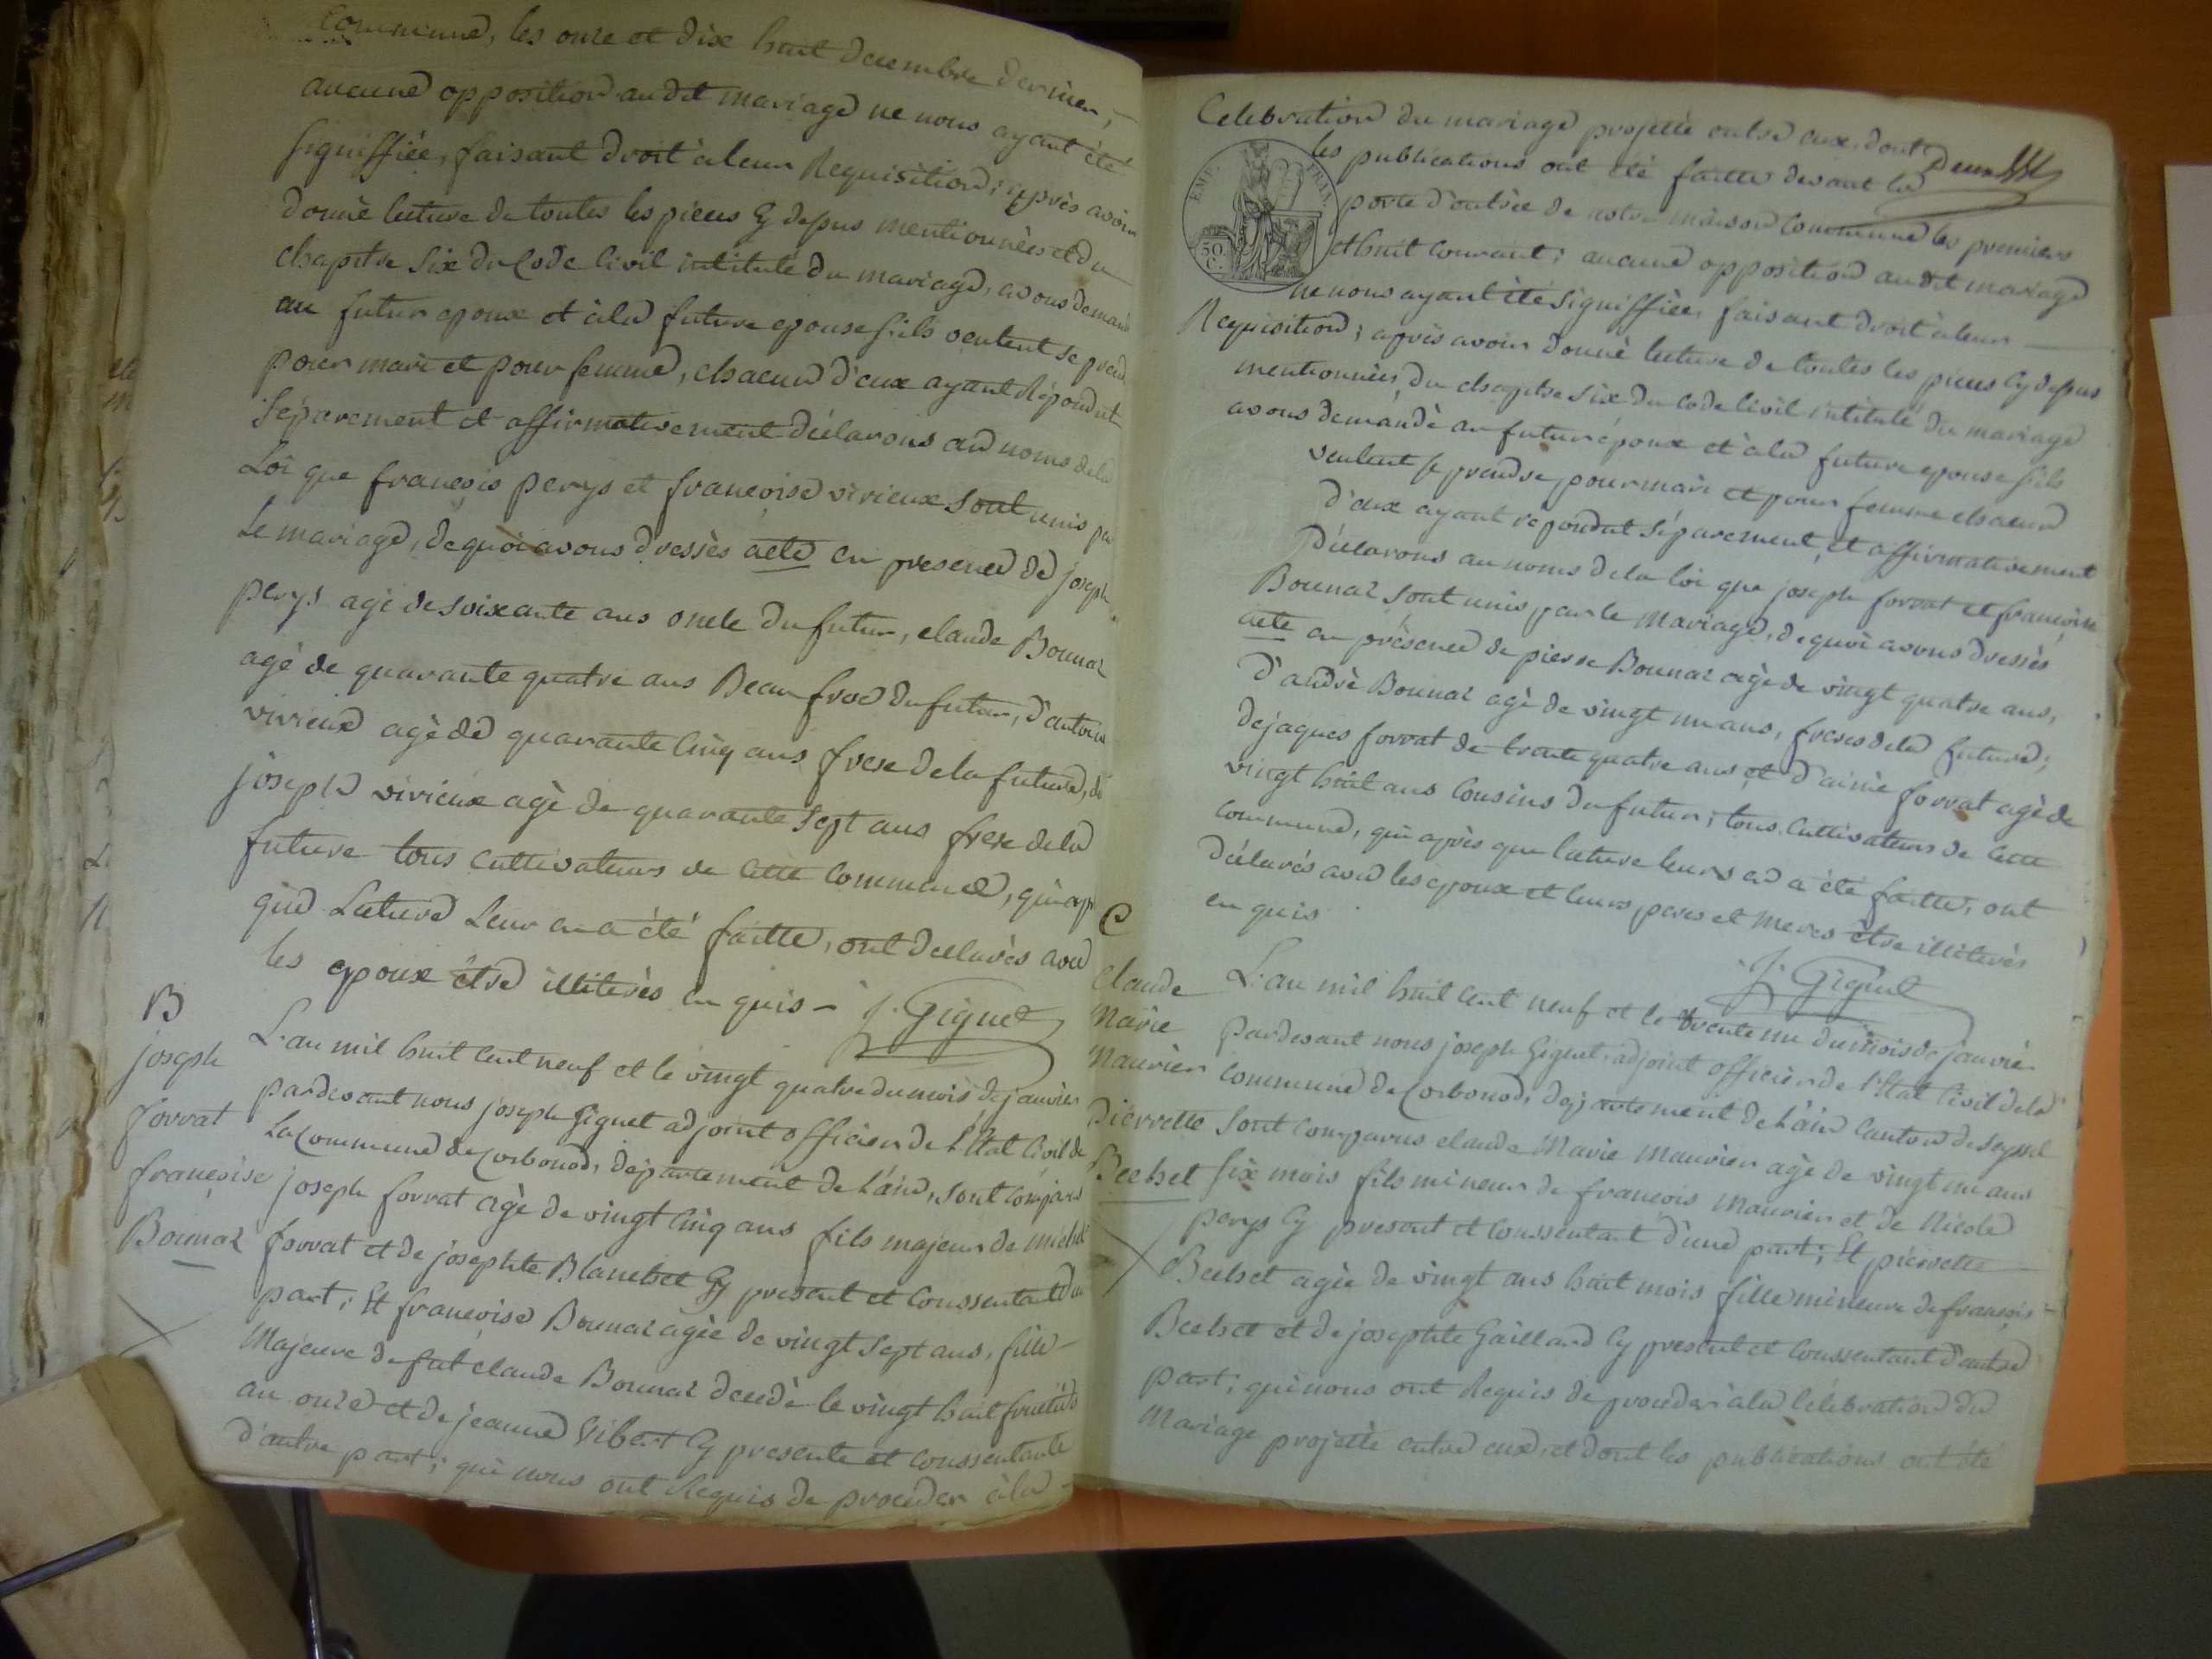 commune, les onze et dix huit decembre dernier,
aucune opposition audit mariage ne nous ayant été
signiffiée, faisant droit à leur Requisition; après avoir
donné lecture de toutes les pieces Cy dessus mentionnées et du
chapitre six du Code Civil intitulé du mariage, avons demand
au futur epoux et à la future epouse s'ils veulent se prend
pour mari et pour femme, chacun d'eux ayant Répondut
Séparement et affirmativement déclarons au noms de la
Loi que francois perys et francoise virieux sont unis par
Le mariage, de quoi avons dressès acte en presence de joseph
perys agé de soixante ans oncle du futur, claude Bounaz
agé de quarante quatre ans Beau frere du futur, d'antoine
virieux agé de quarante Cinq ans frere de la future, de
joseph virieux agè de quarante Sept ans frere de la
future tous cultivateurs de cette commune, qui apr
que Lecture Leur en a été faitte, ont declarés avec
les epoux être illiterés en quis - J. Giguet
B
joseph
forrat
francoise
Bounaz
L'an mil huit cent neuf et le vingt quatre du mois de janvier
pardevant nous joseph Giguet adjoint officier de l'Etat Civil de
La commune de Corbonod, departement de L'ain, sont comparus
joseph forrat agé de vingt Cinq ans fils majeur de michel
forrat et de josephte Blanchet Cy present et Conssentant d'u
part; Et francoise Bounaz agée de vingt Sept ans, fille
Majeure de fut claude Bounaz decedé le vingt huit fructido
an onze et de jeanne Vibert Cy presente et conssentante
d'autre part; qui nous ont Requis de proceder à la
Celebration du mariage projetté entre eux, dont
les publications ont été faittes devant la
porte d'entrée de notre maison commune les premiers
et huit courant; aucune opposition audit mariage
ne nous ayant été signiffiée, faisant droit à leur
Requisition; après avoir donné lecture de toutes les pieces Cy dessus
mentionnées, du chapitre six du Code Civil intitulé du mariage
avons demandé au futur époux et à la future epouse s'ils
veulent se prendre pour mari et pour femme chacun
d'eux ayant repondut séparement, et affirmativement
Déclarons au noms de la loi que joseph forrat et francoise
Bounaz sont unis par le Mariage, de quoi avons dressés
acte en présence de pierre Bounaz agé de vingt quatre ans,
d'andré Bounaz agé de vingt un ans, freres de la future;
de jaques forrat de trente quatre ans et d'aimé forrat agé de
vingt huit ans Cousins du futur; tous Cultivateurs de Cette
commune, qui après que lecture leurs en a été faitte, ont
déclarés avec les epoux et leurs peres et meres être illiterés
en quis
J. Giguet
EMP. FRAN.
50
C.
C
Claude
Marie
Maurier
Pierrette
Bechet
L'an mil huit Cent neuf et le trente un du mois de janvier
pardevant nous joseph Giguet, adjoint officier de l'Etat Civil de la
commune de Corbonod, departement de L'ain Canton de Seyssel
sont comparus claude Marie Maurier agé de vingt un ans
six mois fils mineur de francois Maurier et de Nicole
perys Cy present et Conssentant d'une part; Et pierrette
Bechet agée de vingt ans huit mois fille mineure de francois
Bechet et de josephte Gaillard Cy present et Conssentant d'autre
part; qui nous ont Requis de proceder à la Célébration du
Mariage projetté entre eux, et dont les publications ont été